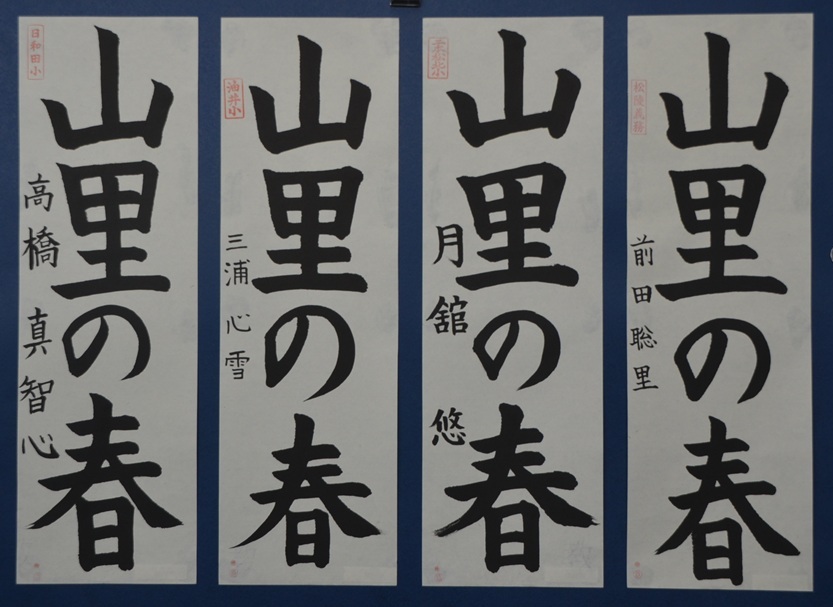 日和田小
山里の春
高橋真智心
油井小
山里の春
三浦心雪
山里の春
月舘悠
松陵義務
山里の春
前田聡里